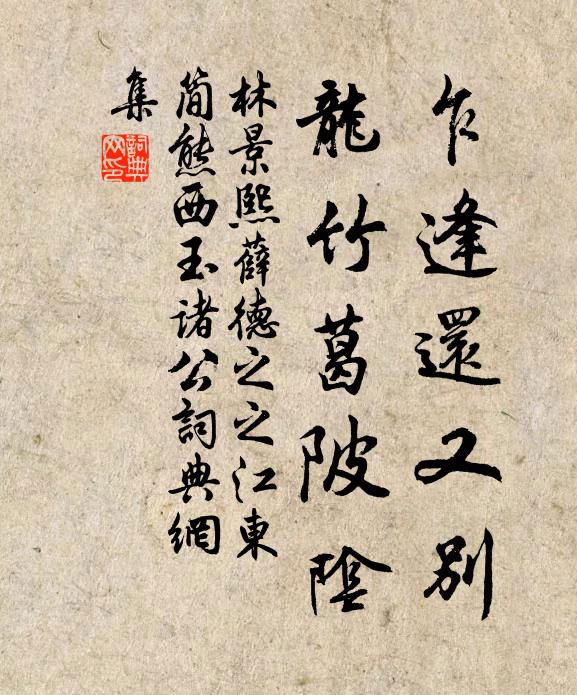 乍逢還又別
龍竹葛陂陰
林景熙薛德之之江東
簡熊西玉諸公詞典網
集
詞典網印